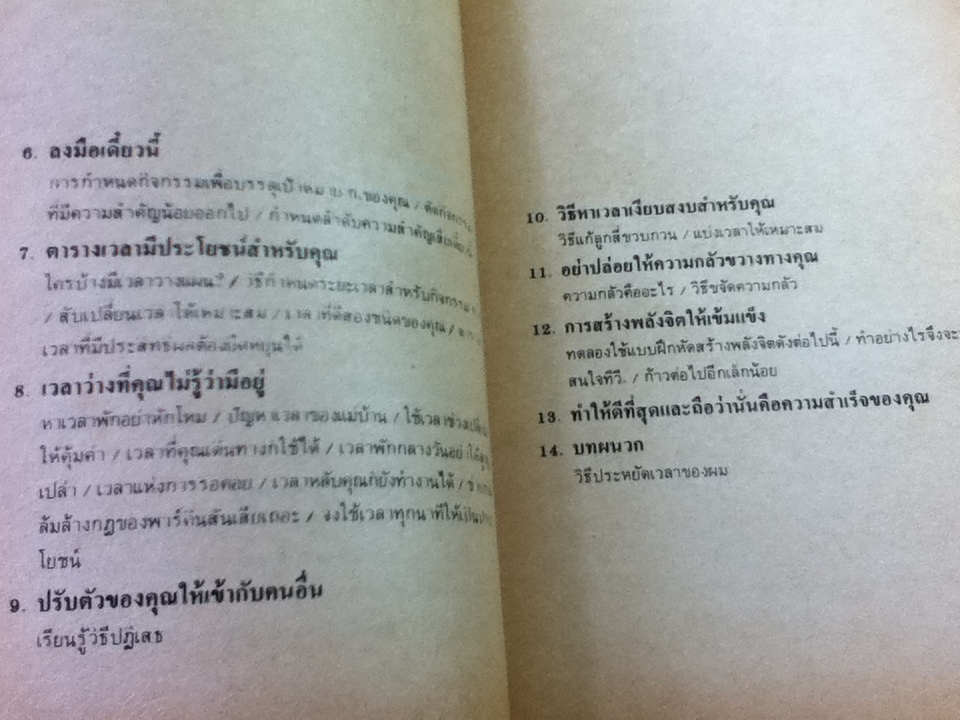 6. ลงมือเดี๋ยวนี้
การกำหนดกิจกรรมเพื่อบรรลุเป้าหมาย ของคุณ /
ที่มีความสำคัญน้อยออกไป / กำหนดลำดับความสำคัญ
7. ตารางเวลามีประโยชน์สำหรับคุณ
ใครบ้างมีเวลาวางแผน? / วิธีกำหนดระยะเวลาสำหรับกิจกรรม
/ สับเปลี่ยนเวลาให้เหมาะสม / เวลาที่ดีสองชนิดของคุณ /
เวลาที่มีประสิทธิผลต้องยืดหยุ่นได้
8. เวลาว่างที่คุณไม่รู้ว่ามีอยู่
หาเวลาพักอย่าหักโหม / ปัญหาเวลาของแม่บ้าน / ใช้เวลาช่วง
ให้คุ้มค่า / เวลาที่คุณเดินทางก็ใช้ได้ / เวลาพักกลางวันอย่าให้
เปล่า / เวลาแห่งการรอคอย / เวลาหลับคุณก็ยังทำงานได้ /
ล้มล้างกฎของพาร์กินสันเสียเถอะ / จงใช้เวลาทุกนาทีให้เป็นประ
โยชน์
9. ปรับตัวของคุณให้เข้ากับคนอื่น
เรียนรู้วิธีปฏิเสธ
10. วิธีหาเวลาเงียบสงบสำหรับคุณ
วิธีแก้ลูกสี่ขวบกวน / แบ่งเวลาให้เหมาะสม
11. อย่าปล่อยให้ความกลัวขวางทางคุณ
ความกลัวคืออะไร / วิธีขจัดความกลัว
12. การสร้างพลังจิตให้เข้มแข็ง
ทดลองใช้แบบฝึกหัดสร้างพลังจิตดังต่อไปนี้ / ทำอย่างไรจึงจะ
สนใจทีวี / ก้าวต่อไปอีกเล็กน้อย
13. ทำให้ดีที่สุดและถือว่านั่นคือความสำเร็จของคุณ
14. บทผนวก
วิธีประหยัดเวลาของผม